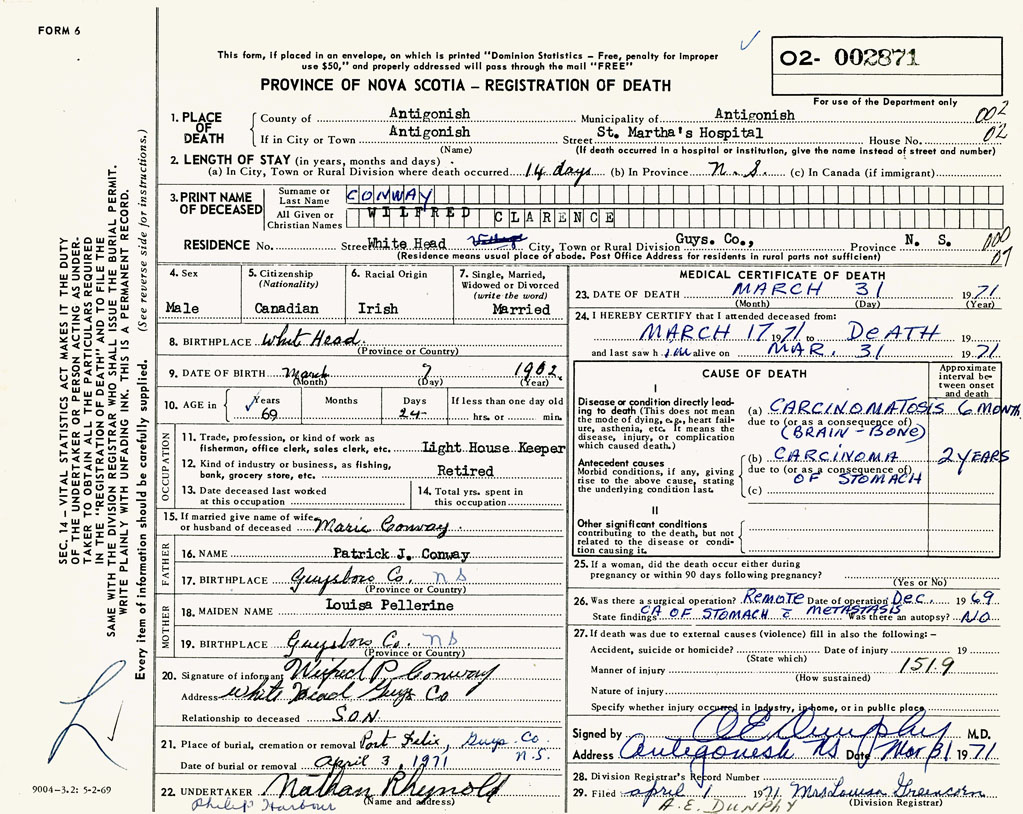 FORM 6
This form, if placed in an envelope, on which is printed "Dominion Statistics – Free, penalty for improper
use $50," and properly addressed will pass through the mail "FREE"
02- 002871
PROVINCE OF NOVA SCOTIA – REGISTRATION OF DEATH
For use of the Department only
1. PLACE OF DEATH
County of Antigonish Municipality of Antigonish 002
If in City or Town Antigonish Street St. Martha's Hospital House No. 02
(Name) (If death occurred in a hospital or institution, give the name instead of street and number)
2. LENGTH OF STAY (in years, months and days)
(a) In City, Town or Rural Division where death occurred 14 days (b) In Province N. S. (c) In Canada (if immigrant)
3. PRINT NAME OF DECEASED
Surname or Last Name CONWAY
All Given or Christian Names WILFRED CLARENCE
RESIDENCE No. Street White Head City, Town or Rural Division Guys. Co., Province N. S. 000
(Residence means usual place of abode. Post Office Address for residents in rural parts not sufficient) 07
SEC. 14 – VITAL STATISTICS ACT MAKES IT THE DUTY
OF THE UNDERTAKER OR PERSON ACTING AS UNDER-
TAKER TO OBTAIN ALL THE PARTICULARS REQUIRED
IN THE "REGISTRATION OF DEATH" AND TO FILE THE
SAME WITH THE DIVISION REGISTRAR WHO SHALL ISSUE THE BURIAL PERMIT.
WRITE PLAINLY WITH UNFADING INK. THIS IS A PERMANENT RECORD.
Every item of information should be carefully supplied. (See reverse side for instructions.)
4. Sex
Male
5. Citizenship
(Nationality)
Canadian
6. Racial Origin
Irish
7. Single, Married,
Widowed or Divorced
(write the word)
Married
8. BIRTHPLACE White Head.
(Province or Country)
9. DATE OF BIRTH March 7 1902.
(Month) (Day) (Year)
10. AGE in
Years Months Days If less than one day old
69 24 hrs. or min.
OCCUPATION
11. Trade, profession, or kind of work as
fisherman, office clerk, sales clerk, etc. Light House Keeper
12. Kind of industry or business, as fishing,
bank, grocery store, etc. Retired
13. Date deceased last worked
at this occupation
14. Total yrs. spent in
this occupation
15. If married give name of wife
or husband of deceased Marie Conway.
FATHER
16. NAME Patrick J. Conway
17. BIRTHPLACE Guysboro Co. N S
(Province or Country)
MOTHER
18. MAIDEN NAME Louisa Pellerine
19. BIRTHPLACE Guysboro Co. N S
(Province or Country)
20. Signature of informant Wilfred P. Conway
Address White Head Guys Co
Relationship to deceased SON.
21. Place of burial, cremation or removal Port Felix, Guys. Co. N.S.
Date of burial or removal April 3, 1971
22. UNDERTAKER Nathan Rhynold
(Name and address)
Philip Harbour
MEDICAL CERTIFICATE OF DEATH
23. DATE OF DEATH MARCH 31 1971
(Month) (Day) (Year)
24. I HEREBY CERTIFY that I attended deceased from:
MARCH 17 1971 to DEATH 19
and last saw him alive on MAR. 31 1971
CAUSE OF DEATH
Approximate
interval be-
tween onset
and death
I
Disease or condition directly lead-
ing to death (This does not mean
the mode of dying, e.g., heart fail-
ure, asthenia, etc. It means the
disease, injury, or complication
which caused death.)
(a) CARCINOMATOSIS 6 MONTH
due to (or as a consequence of)
(BRAIN-BONE)
Antecedent causes
Morbid conditions, if any, giving
rise to the above cause, stating
the underlying condition last.
(b) CARCINOMA 2 YEARS
due to (or as a consequence of)
OF STOMACH
(c)
II
Other significant conditions
contributing to the death, but not
related to the disease or condi-
tion causing it.
25. If a woman, did the death occur either during
pregnancy or within 90 days following pregnancy?
(Yes or No)
26. Was there a surgical operation? REMOTE Date of operation Dec. 1969
State findings CA OF STOMACH c̄ METASTASIS Was there an autopsy? NO
27. If death was due to external causes (violence) fill in also the following: –
Accident, suicide or homicide? Date of injury 19
(State which)
Manner of injury 151.9
(How sustained)
Nature of injury
Specify whether injury occurred in industry, in home, or in public place
Signed by A E Dunphy M.D.
Address Antigonish NS Date Mar 31 1971
28. Division Registrar's Record Number
29. Filed April 1 1971 Mrs Louisa Greencorn
(Division Registrar)
A. E. DUNPHY
9004-3.2: 5-2-69